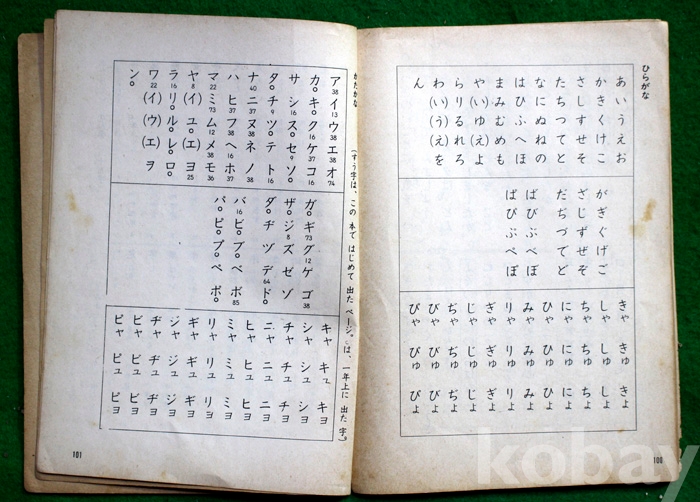 ひらがな
あ い う え お
か き く け こ
さ し す せ そ
た ち つ て と
な に ぬ ね の
は ひ ふ へ ほ
ま み む め も
や (い) ゆ (え) よ
ら り る れ ろ
わ (い) (う) (え) を
ん
が ぎ ぐ げ ご
ざ じ ず ぜ ぞ
だ ぢ づ で ど
ば び ぶ べ ぼ
ぱ ぴ ぷ ぺ ぽ
きゃ きゅ きょ
しゃ しゅ しょ
ちゃ ちゅ ちょ
にゃ にゅ にょ
ひゃ ひゅ ひょ
みゃ みゅ みょ
りゃ りゅ りょ
ぎゃ ぎゅ ぎょ
じゃ じゅ じょ
ぢゃ ぢゅ ぢょ
びゃ びゅ びょ
ぴゃ ぴゅ ぴょ
100
かたかな (すう字は、この 本で はじめて 出た ページ。○は、一年上に 出た 字。)
ア38 イ13 ウ38 エ38 オ74
カ○ キ○ ク16 ケ37 コ16
サ シ16 ス○ セ9 ソ○
タ○ チ9 ツ○ テ ト16
ナ40 ニ37 ヌ38 ネ ノ38
ハ ヒ37 フ38 ヘ16 ホ37
マ22 ミ73 ム12 メ38 モ36
ヤ8 (イ) ユ○ (エ) ヨ25
ラ16 リ○ ル○ レ○ ロ○
ワ22 (イ) (ウ) (エ) ヲ
ン○
ガ○ ギ73 グ12 ゲ ゴ38
ザ○ ジ8 ズ ゼ ゾ
ダ○ ヂ ヅ デ64 ド○
バ16 ビ○ ブ○ ベ ボ85
パ○ ピ○ プ○ ペ ポ○
キャ キュ キョ
シャ シュ ショ
チャ チュ チョ
ニャ ニュ ニョ
ヒャ ヒュ ヒョ
ミャ ミュ ミョ
リャ リュ リョ
ギャ ギュ ギョ
ジャ ジュ ジョ
ヂャ ヂュ ヂョ
ビャ ビュ ビョ
ピャ ピュ ピョ
101
kobay